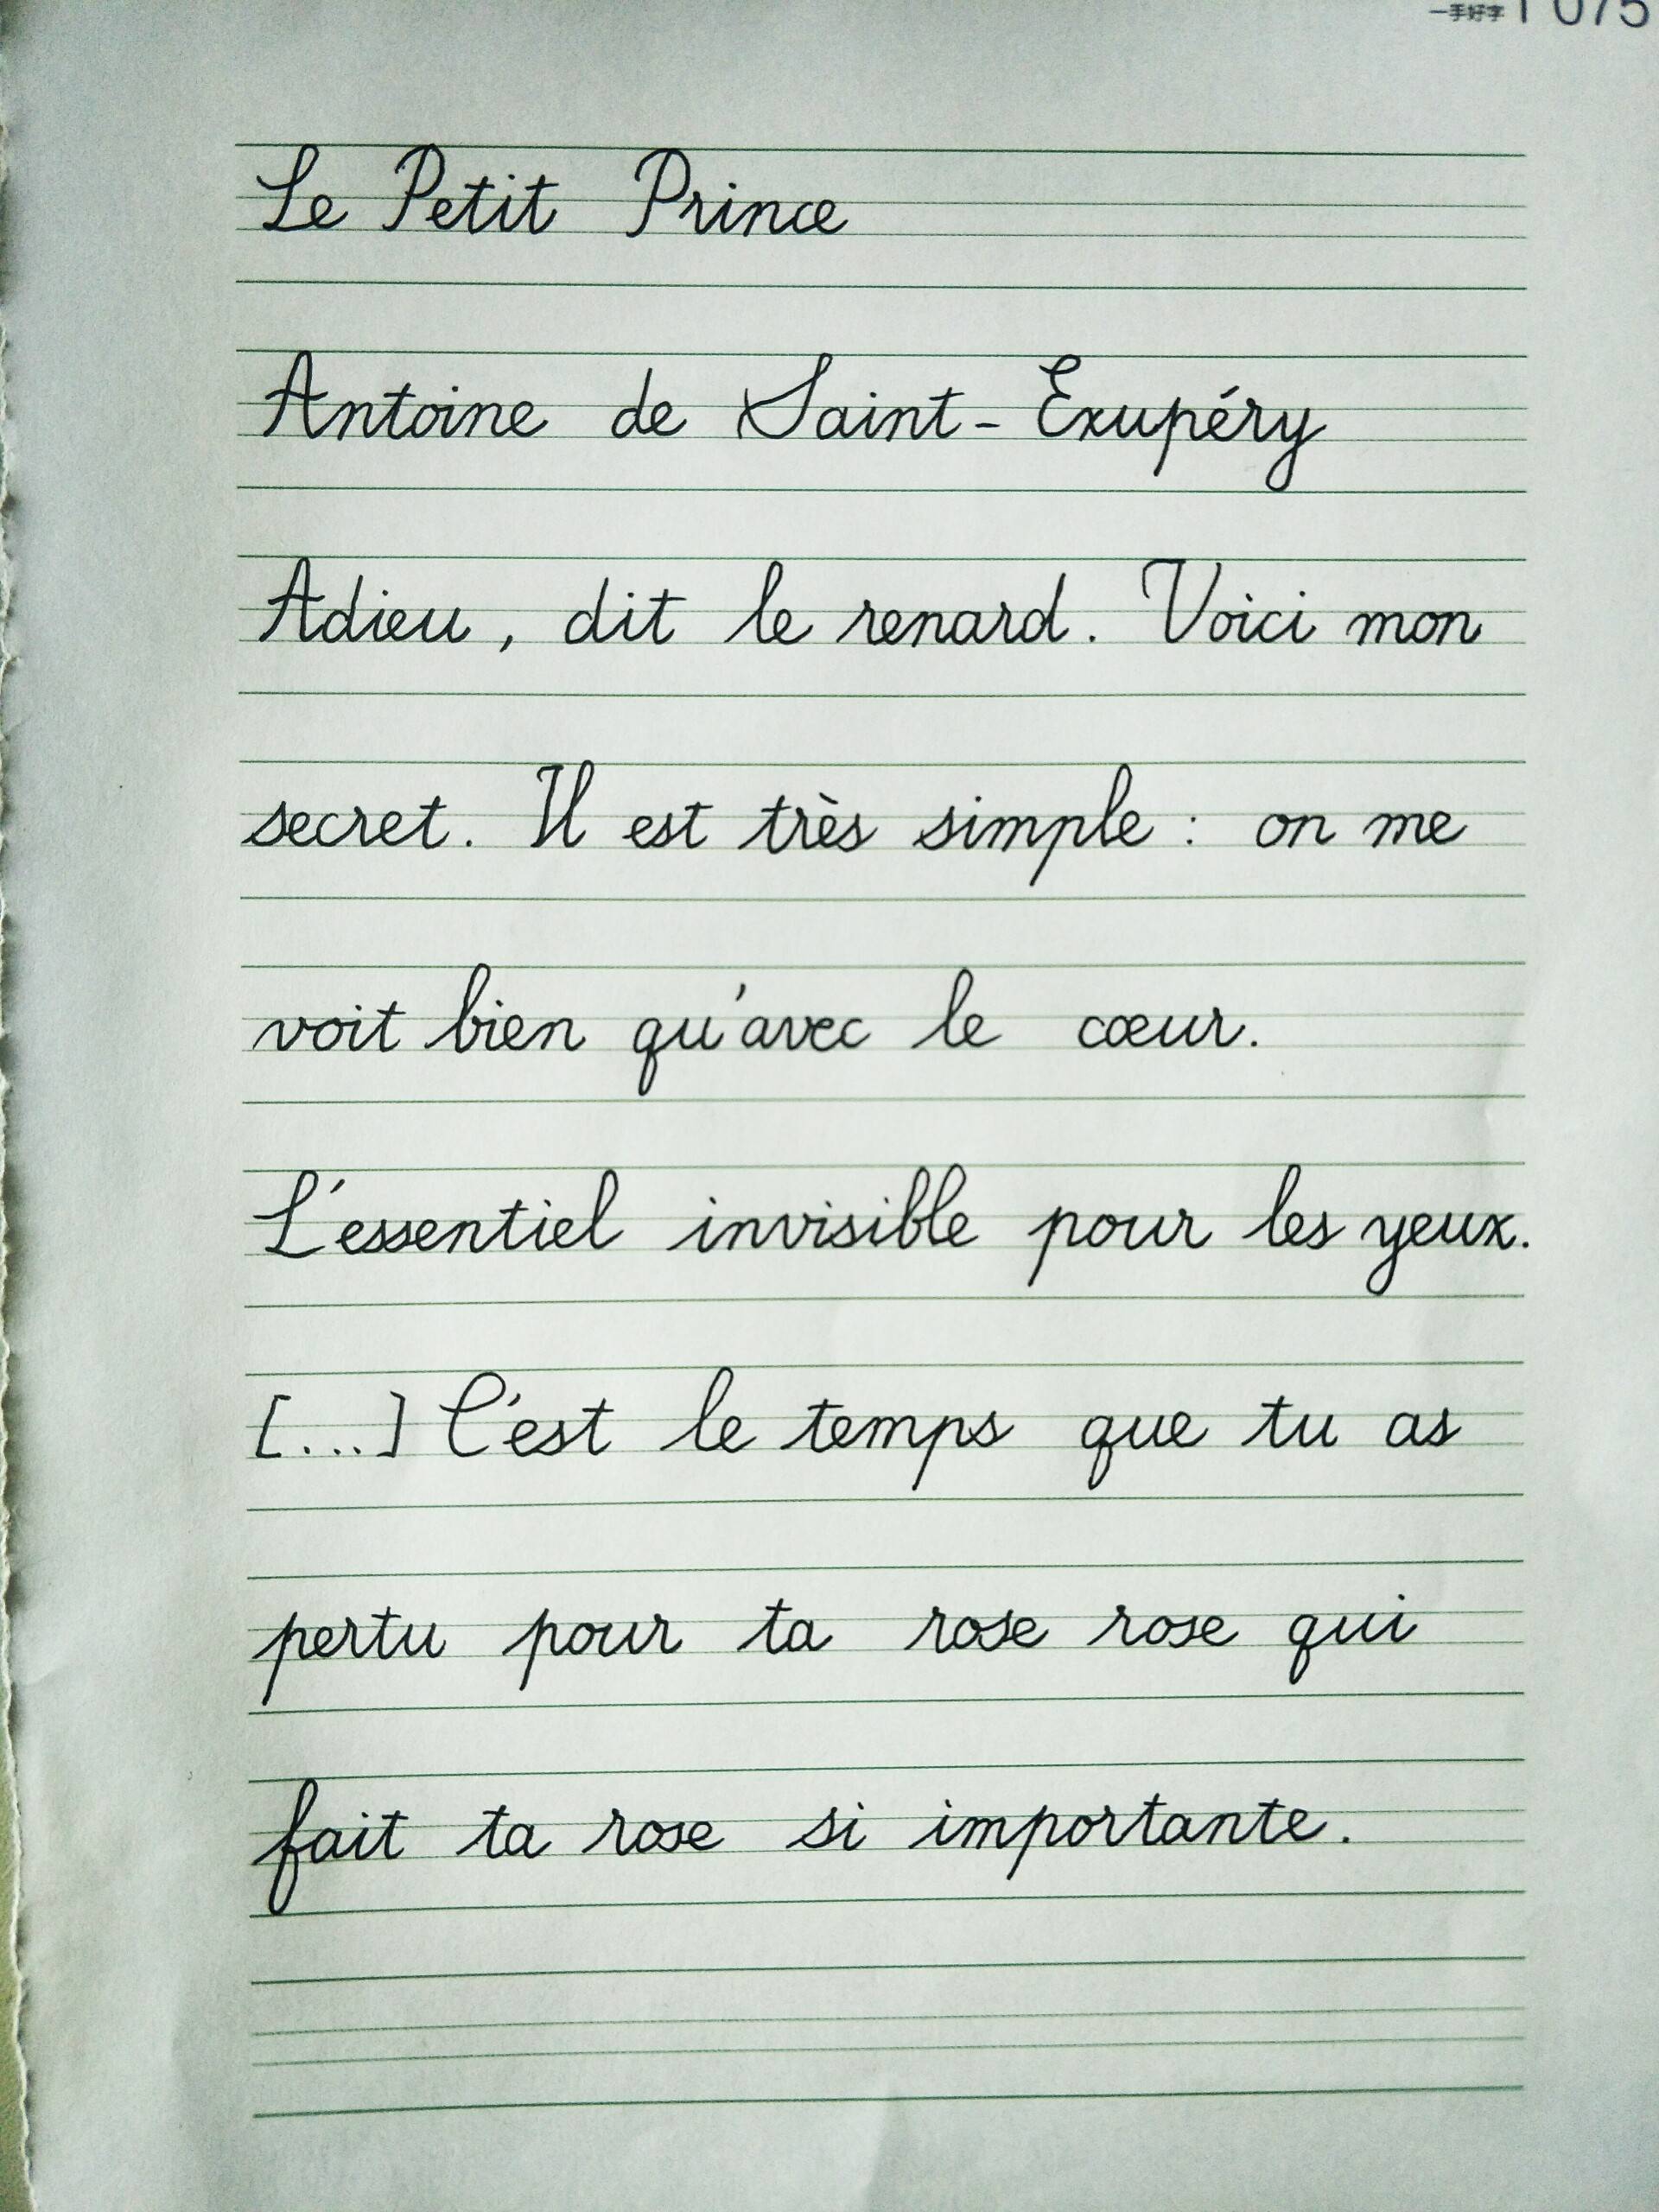 一手好字 P 075
Le Petit Prince
Antoine de Saint-Exupéry
Adieu, dit le renard. Voici mon
secret. Il est très simple : on me
voit bien qu'avec le cœur.
L'essentiel invisible pour les yeux.
[...] C'est le temps que tu as
pertu pour ta rose rose qui
fait ta rose si importante.